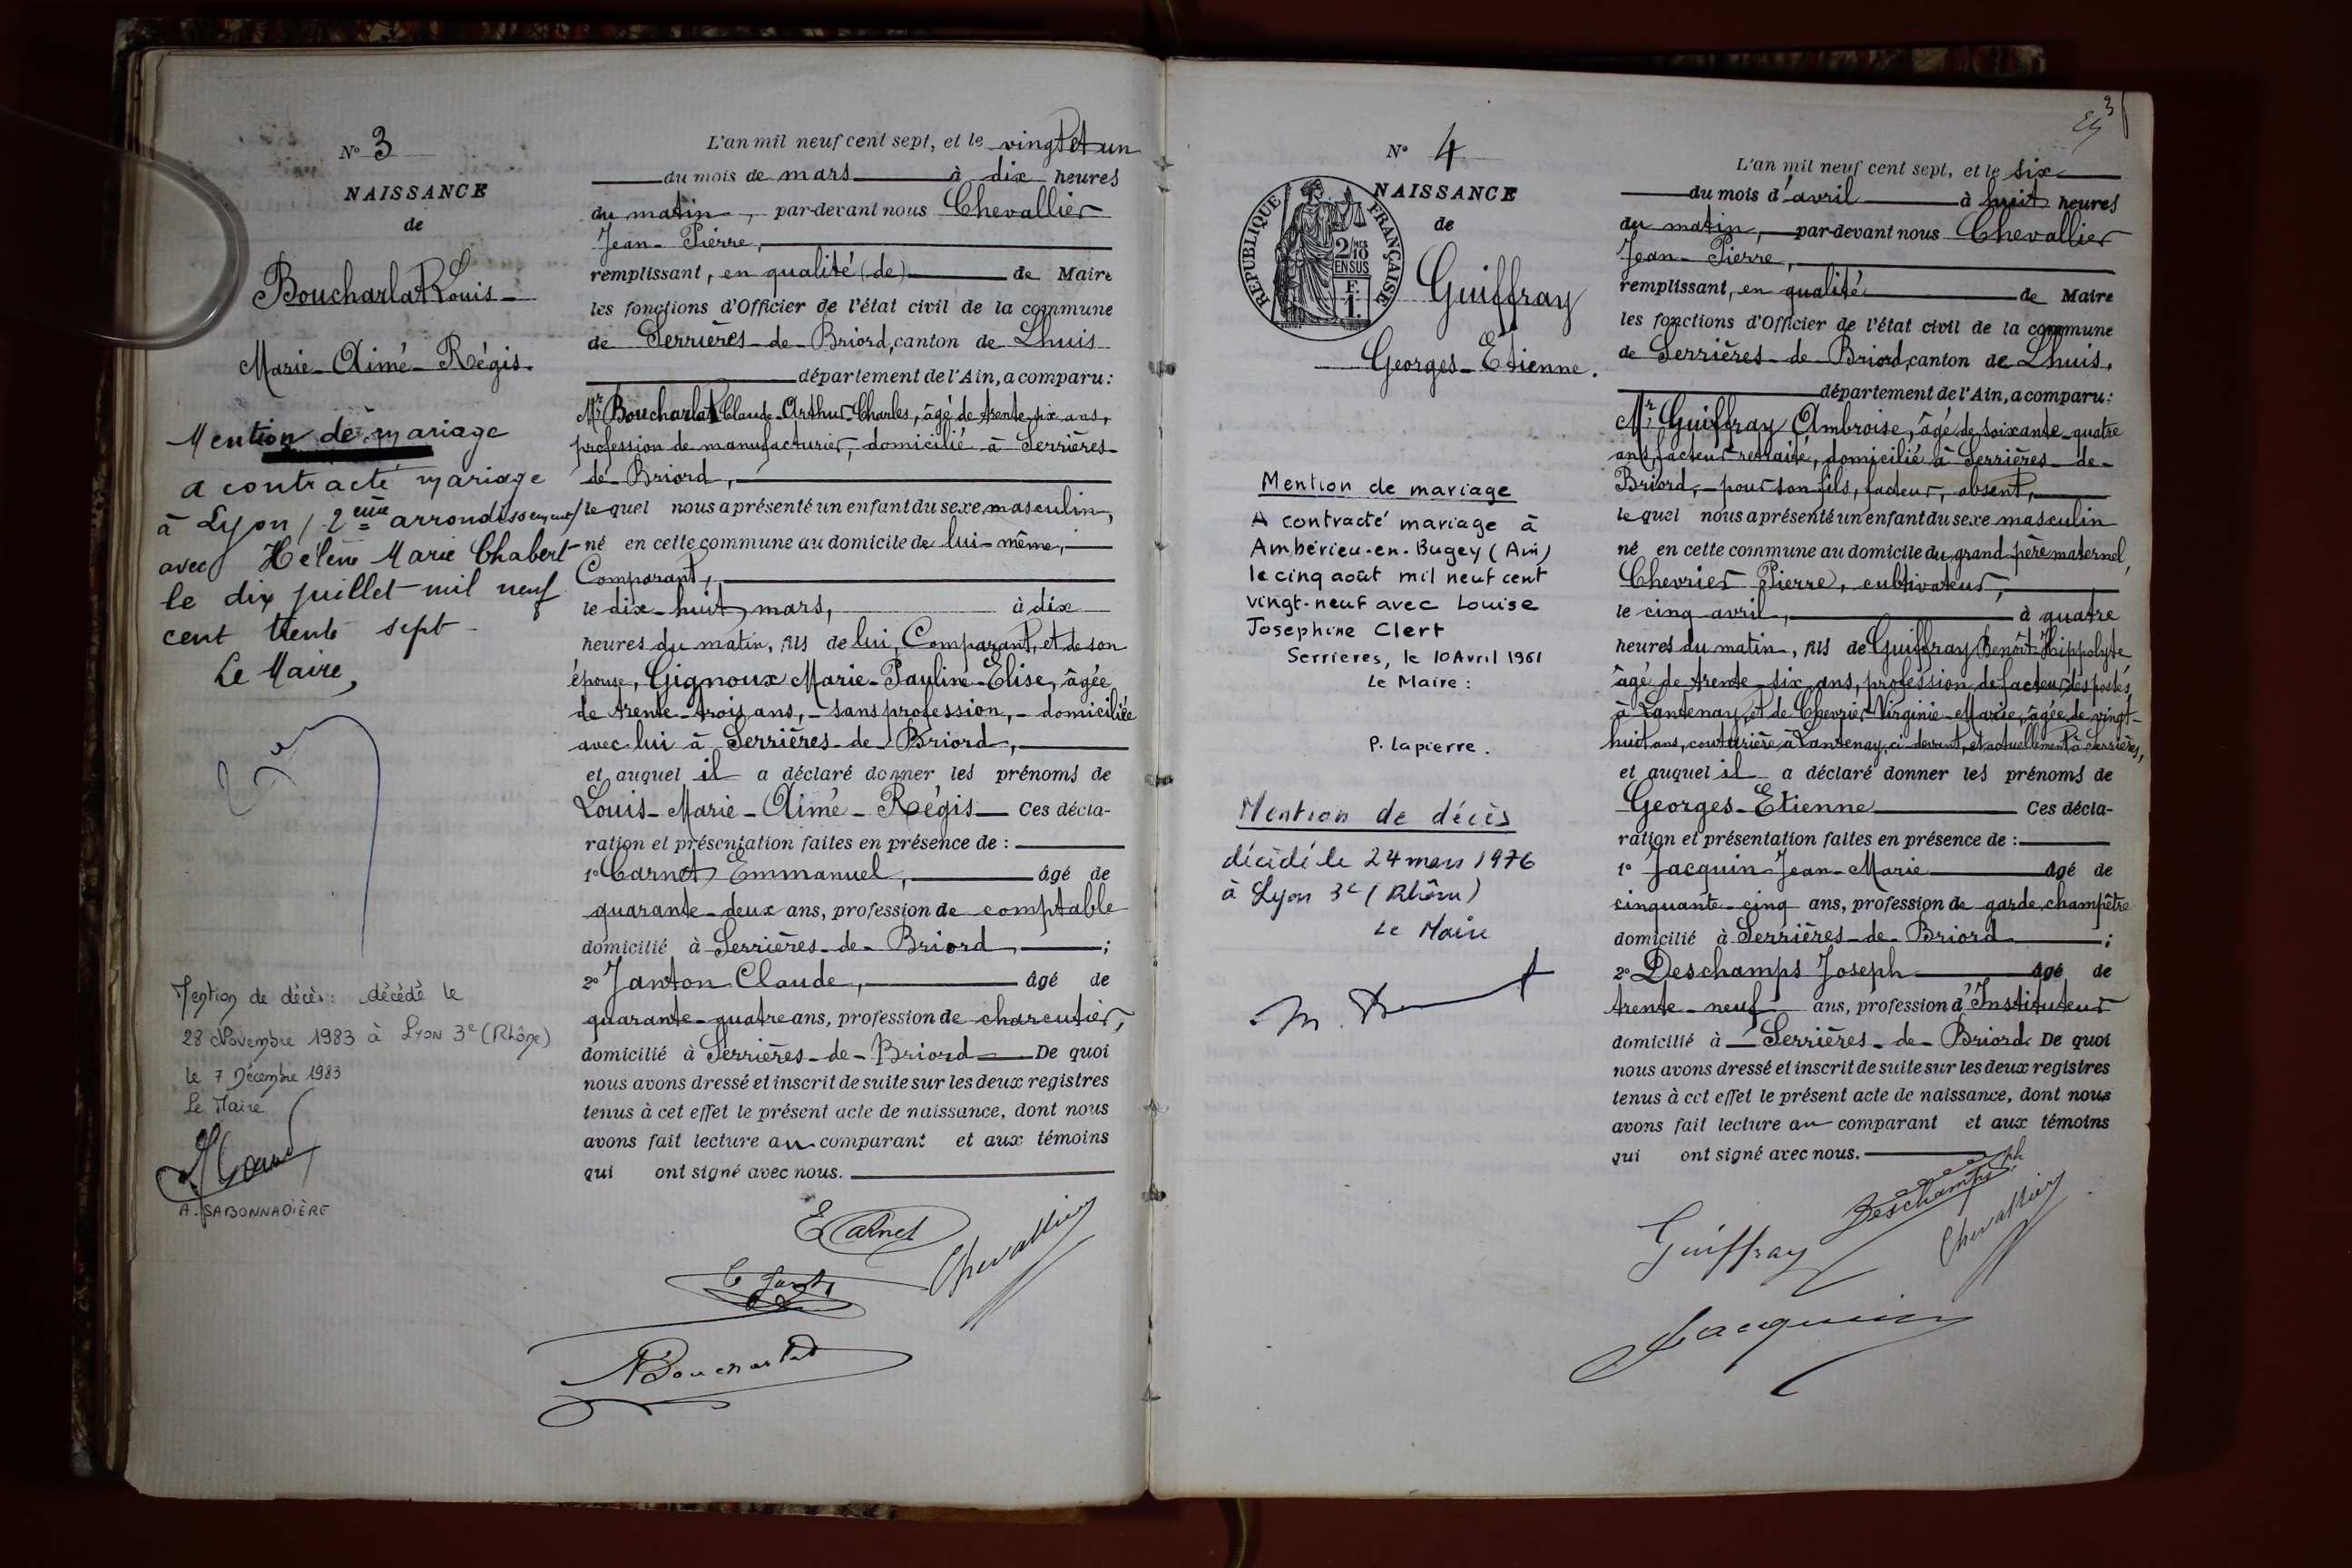 N° 3
NAISSANCE
de
Boucharlat Louis-
Marie-Aimé-Régis.
Mention de mariage
a contracté mariage
à Lyon / 2ème arrondissement /
avec Hélène Marie Chabert
le dix juillet mil neuf
cent trente sept.
Le Maire,
Mention de décès : décédé le
28 Novembre 1983 à Lyon 3e (Rhône)
le 7 Décembre 1983
Le Maire
A. SABONNADIÈRE
L'an mil neuf cent sept, et le vingt et un
du mois de mars à dix heures
du matin, par-devant nous Chevallier
Jean-Pierre,
remplissant, en qualité (de) de Maire
les fonctions d'Officier de l'état civil de la commune
de Serrières-de-Briord, canton de Lhuis
département de l'Ain, a comparu :
Mr Boucharlat Claude-Arthur-Charles, âgé de trente-six ans,
profession de manufacturier, domicilié à Serrières-
de-Briord,
lequel nous a présenté un enfant du sexe masculin,
né en cette commune au domicile de lui-même,
Comparant,
le dix-huit mars, à dix
heures du matin, fils de lui, Comparant, et de son
épouse, Gignoux Marie-Pauline-Elise, âgée
de trente-trois ans, - sans profession, - domiciliée
avec lui à Serrières-de-Briord,
et auquel il a déclaré donner les prénoms de
Louis-Marie-Aimé-Régis Ces décla-
ration et présentation faites en présence de :
1° Carnet Emmanuel, âgé de
quarante-deux ans, profession de comptable
domicilié à Serrières-de-Briord, ;
2° Janton Claude, âgé de
quarante-quatre ans, profession de charcutier,
domicilié à Serrières-de-Briord De quoi
nous avons dressé et inscrit de suite sur les deux registres
tenus à cet effet le présent acte de naissance, dont nous
avons fait lecture au comparant et aux témoins
qui ont signé avec nous.
E Carnet
Chevallier
Boucharlat
N° 4
NAISSANCE
de
RÉPUBLIQUE FRANÇAISE
2/10 MES
EN SUS
F.
1.
Guiffray
Georges-Etienne.
Mention de mariage
A contracté mariage à
Ambérieu-en-Bugey (Ain)
le cinq août mil neuf cent
vingt-neuf avec Louise
Josephine Clert
Serrieres, le 10 Avril 1961
Le Maire :
P. Lapierre.
Mention de décès
décédé le 24 mars 1976
à Lyon 3e (Rhône)
Le Maire
3
L'an mil neuf cent sept, et le six
du mois d'avril à huit heures
du matin, par-devant nous Chevallier
Jean-Pierre,
remplissant, en qualité de Maire
les fonctions d'Officier de l'état civil de la commune
de Serrières-de-Briord, canton de Lhuis,
département de l'Ain, a comparu :
Mr Guiffray Ambroise, âgé de soixante-quatre
ans, facteur retraité, domicilié à Serrières-de-
Briord, - pour son fils, facteur, absent,
lequel nous a présenté un enfant du sexe masculin
né en cette commune au domicile du grand-père maternel,
Chevrier Pierre, cultivateur,
le cinq avril, à quatre
heures du matin, fils de Guiffray Benoît-Hippolyte,
âgé de trente-six ans, profession de facteur des postes,
à Lantenay, et de Chevrier Virginie-Marie, âgée de vingt-
huit ans, couturière à Lantenay, ci-devant, et actuellement à Serrières,
et auquel il a déclaré donner les prénoms de
Georges-Etienne Ces décla-
ration et présentation faites en présence de :
1° Jacquin Jean-Marie âgé de
cinquante-cinq ans, profession de garde champêtre
domicilié à Serrières-de-Briord ;
2° Deschamps Joseph âgé de
trente-neuf ans, profession d'Instituteur
domicilié à Serrières-de-Briord. De quoi
nous avons dressé et inscrit de suite sur les deux registres
tenus à cet effet le présent acte de naissance, dont nous
avons fait lecture au comparant et aux témoins
qui ont signé avec nous.
Deschamps
Guiffray
Chevallier
Jacquin